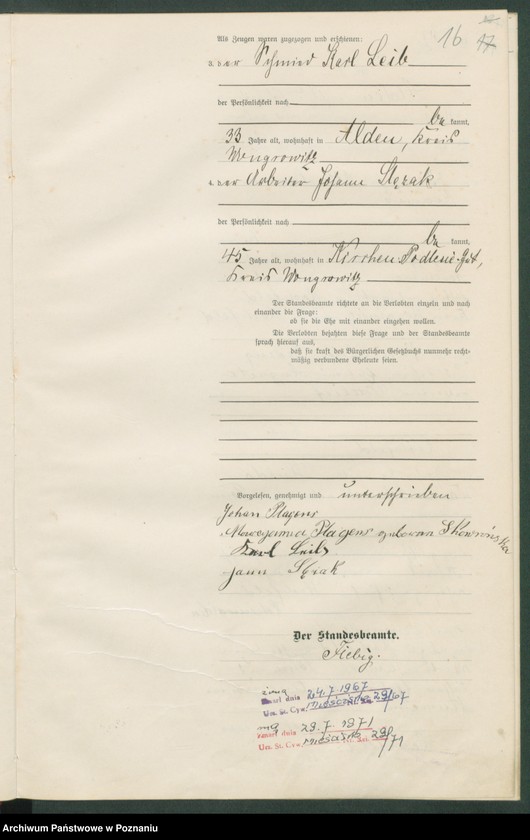 16
17
Als Zeugen waren zugezogen und erschienen:
3. der Schmied Karl Leib
der Persönlichkeit nach
be kannt,
33 Jahre alt, wohnhaft in Alden, Kreis
Wongrowitz
4. der Arbeiter Johann Slęzak
der Persönlichkeit nach
be kannt,
45 Jahre alt, wohnhaft in Kirchen Podlesie-Gut,
Kreis Wongrowitz
Der Standesbeamte richtete an die Verlobten einzeln und nach
einander die Frage:
ob sie die Ehe mit einander eingehen wollen.
Die Verlobten bejahten diese Frage und der Standesbeamte
sprach hierauf aus,
daß sie kraft des Bürgerlichen Gesetzbuchs nunmehr recht-
mäßig verbundene Eheleute seien.
Vorgelesen, genehmigt und unterschrieben
Johan Plagens
Maryanna Plagens geborene Skowrońska
Karl Leib
Der Standesbeamte.
Fiebig.
dnia 24.7.1967
Urz. St. Cyw. Mieścisko 29/67
dnia 29.7.1971
Urz. St. Cyw. Mieścisko 29/71
Archiwum Państwowe w Poznaniu